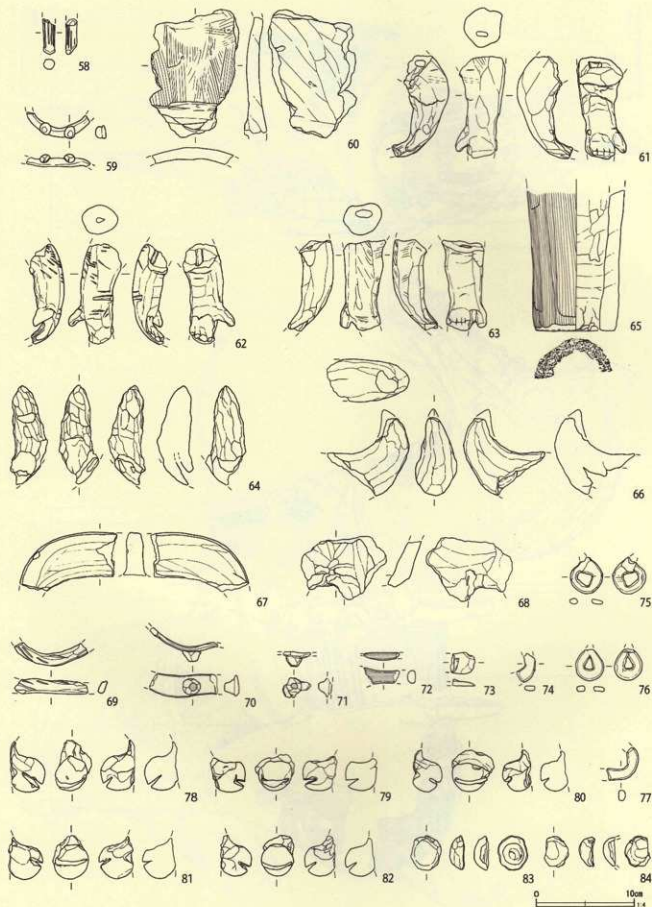 58
59
60
61
62
63
64
65
66
67
68
69
70
71
72
73
74
75
76
77
78
79
80
81
82
83
84
0 10cm
1:4